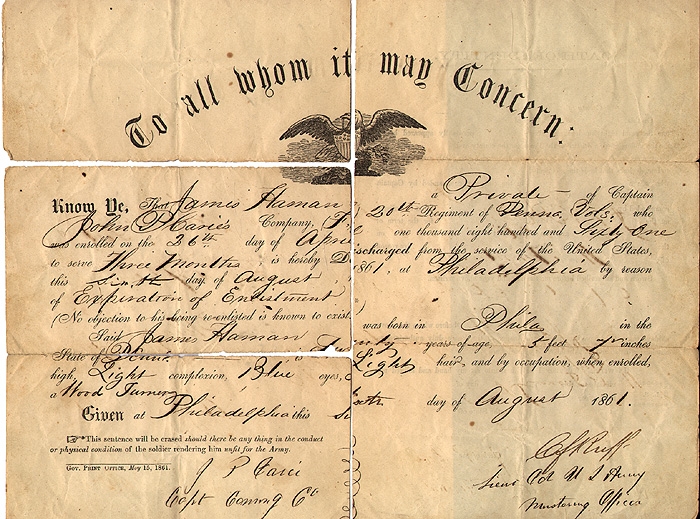 To all whom it may Concern:
Know Ye, That James Haman a Private of Captain
John P Caries Company, 20th Regiment of Penna Vols, who
was enrolled on the 26th day of April one thousand eight hundred and Sixty One
to serve Three Months is hereby Discharged from the service of the United States,
this Sixth day of August 1861, at Philadelphia by reason
of Expiration of Enlistment
(No objection to his being re-enlisted is known to exist
Said James Haman was born in Phila in the
State of Penna is years of age, 5 feet 7 inches
high, Light complexion, Blue eyes, Light hair, and by occupation, when enrolled,
a Wood Turner
Given at Philadelphia this Sixth day of August 1861.
This sentence will be erased should there be any thing in the conduct
or physical condition of the soldier rendering him unfit for the Army.
Gov. Print Office, May 15, 1861.
J P Carie
Capt Comng Co
Lieut Col U S Army
Mustering Officer